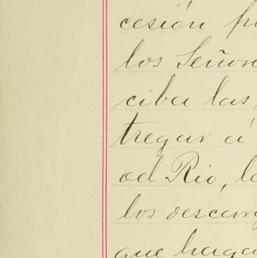 cesión p
los Señor
ciba las
tregar á
del Rio, l
los descar
que haga